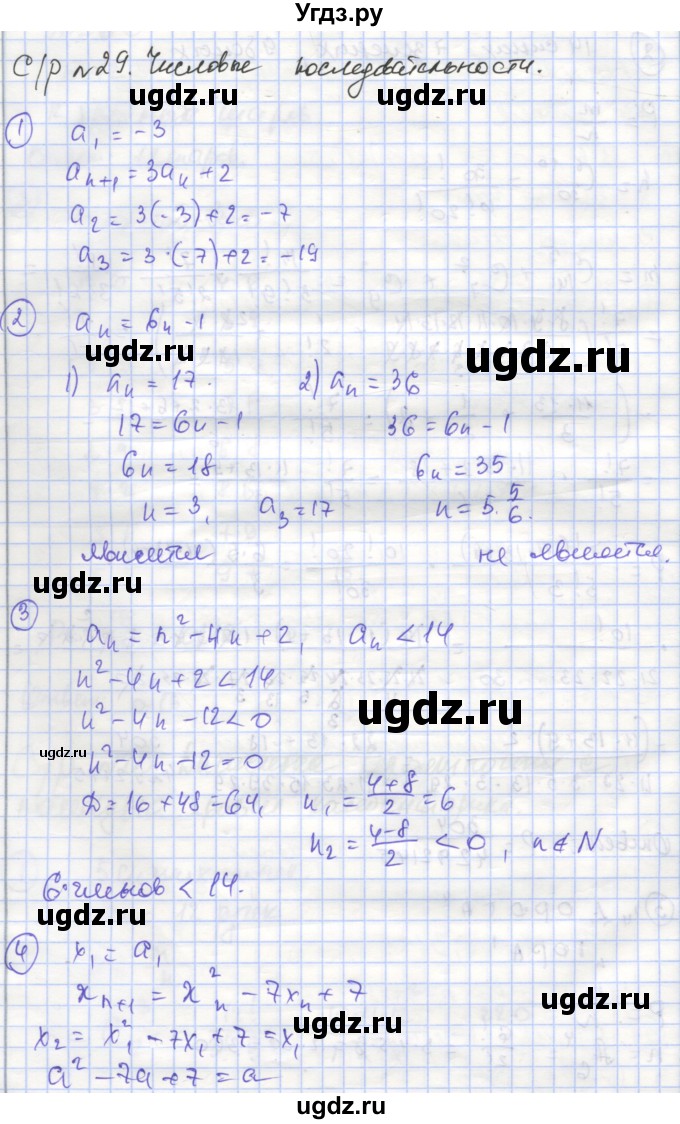 Угдз.ру
С/р №29. Числовые последовательности.
ugdz.ru ugdz.ru
1 a₁ = -3
aₙ₊₁ = 3aₙ + 2
ugdz.ru
a₂ = 3(-3) + 2 = -7
a₃ = 3·(-7) + 2 = -19
2 aₙ = 6n - 1
ugdz.ru ugdz.ru
1) aₙ = 17. 2) aₙ = 36
17 = 6n - 1 36 = 6n - 1
6n = 18 6n = 35
n = 3, a₃ = 17 n = 5 5/6.
Является не является.
ugdz.ru
3
aₙ = n² - 4n + 2, aₙ < 14
n² - 4n + 2 < 14
n² - 4n - 12 < 0 ugdz.ru
ugdz.ru
n² - 4n - 12 = 0
D = 16 + 48 = 64, n₁ = (4+8)/2 = 6
n₂ = (4-8)/2 < 0, n ∉ N
6 членов < 14.
ugdz.ru
4 x₁ = a,
xₙ₊₁ = xₙ² - 7xₙ + 7
ugdz.ru
x₂ = x₁² - 7x₁ + 7 = x₁
ugdz.ru
a² - 7a + 7 = a
ugdz.ru